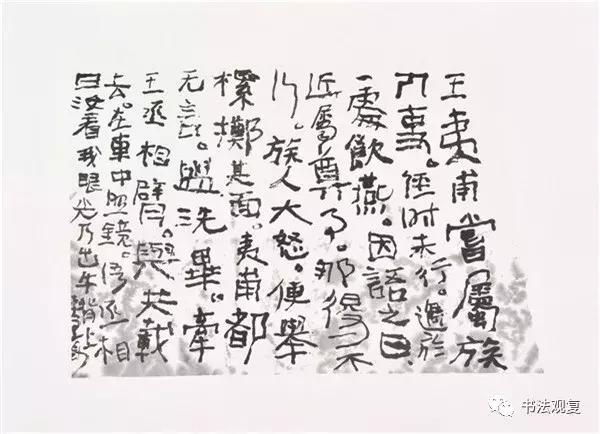 王夷甫嘗屬族
人事。經時未行。遇於
一處飲燕。因語之曰
近屬尊事。那得不
行。族人大怒。便舉
樏擲其面。夷甫都
无言。盥洗畢。牽
王丞相臂。與共載
去。在車中照鏡。語丞相
曰汝看我眼光乃出牛背上
书法观复